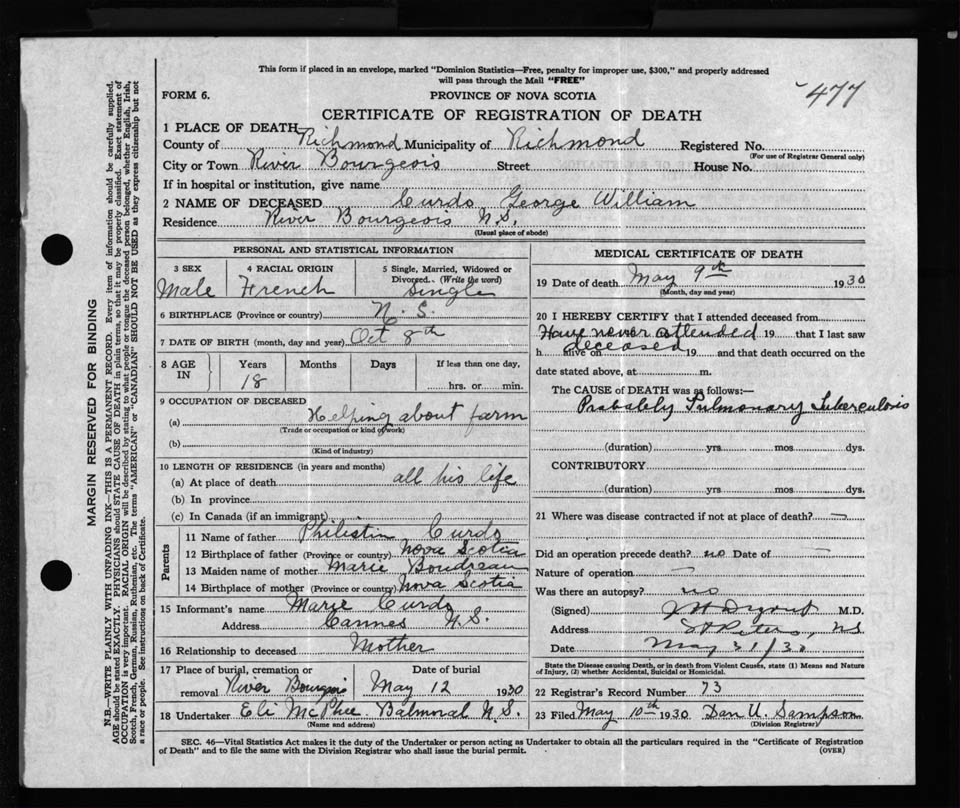 This form if placed in an envelope, marked "Dominion Statistics—Free, penalty for improper use, $300," and properly addressed
will pass through the Mail "FREE"
477
FORM 6.
PROVINCE OF NOVA SCOTIA
CERTIFICATE OF REGISTRATION OF DEATH
1 PLACE OF DEATH
County of Richmond Municipality of Richmond Registered No.
(For use of Registrar General only)
City or Town River Bourgeois Street House No.
If in hospital or institution, give name
2 NAME OF DECEASED Curdo George William
Residence River Bourgeois N.S.
(Usual place of abode)
PERSONAL AND STATISTICAL INFORMATION
3 SEX
Male
4 RACIAL ORIGIN
French
5 Single, Married, Widowed or
Divorced.. (Write the word)
Single
6 BIRTHPLACE (Province or country) N. S.
7 DATE OF BIRTH (month, day and year) Oct 8th
8 AGE
IN
Years
18
Months
Days
If less than one day,
hrs. or min.
9 OCCUPATION OF DECEASED
(a) Helping about farm
(Trade or occupation or kind of work)
(b)
(Kind of industry)
10 LENGTH OF RESIDENCE (in years and months)
(a) At place of death all his life
(b) In province
(c) In Canada (if an immigrant)
Parents
11 Name of father Philistin Curdo
12 Birthplace of father (Province or country) Nova Scotia
13 Maiden name of mother Marie Boudreau
14 Birthplace of mother (Province or country) Nova Scotia
15 Informant's name Marie Curdo
Address Cannes N.S.
16 Relationship to deceased Mother
17 Place of burial, cremation or
removal River Bourgois
Date of burial
May 12 1930
18 Undertaker Eli McPhee Balmoral N.S.
(Name and address)
MEDICAL CERTIFICATE OF DEATH
19 Date of death May 9th 1930
(Month, day and year)
20 I HEREBY CERTIFY that I attended deceased from
Have never attended 19 that I last saw
deceased
h alive on 19 and that death occurred on the
date stated above, at m.
The CAUSE of DEATH was as follows:—
Probably Pulmonary Tuberculosis
(duration) yrs. mos. dys.
CONTRIBUTORY
(duration) yrs. mos. dys.
21 Where was disease contracted if not at place of death? —
Did an operation precede death? no Date of —
Nature of operation —
Was there an autopsy? no
(Signed) M.D.
Address St Peters, NS
Date May 31/30
State the Disease causing Death, or in death from Violent Causes, state (1) Means and Nature
of Injury, (2) whether Accidental, Suicidal or Homicidal.
22 Registrar's Record Number 73
23 Filed May 10th 1930 Dan U. Sampson
(Division Registrar)
SEC. 46—Vital Statistics Act makes it the duty of the Undertaker or person acting as Undertaker to obtain all the particulars required in the "Certificate of Registration
of Death" and to file the same with the Division Registrar who shall issue the burial permit.
(OVER)
MARGIN RESERVED FOR BINDING
N.B.—WRITE PLAINLY WITH UNFADING INK—THIS IS A PERMANENT RECORD. Every item of information should be carefully supplied.
AGE should be stated EXACTLY. PHYSICIANS should STATE CAUSE OF DEATH in plain terms, so that it may be properly classified. Exact statement of
OCCUPATION is very important. RACIAL ORIGIN will be described by stating to what people or tongue the deceased person belonged, whether English, Irish,
Scotch, French, German, Russian, Ruthenian, etc. The terms "AMERICAN" or "CANADIAN" SHOULD NOT BE USED as they express citizenship but not
a race or people. See instructions on back of Certificate.